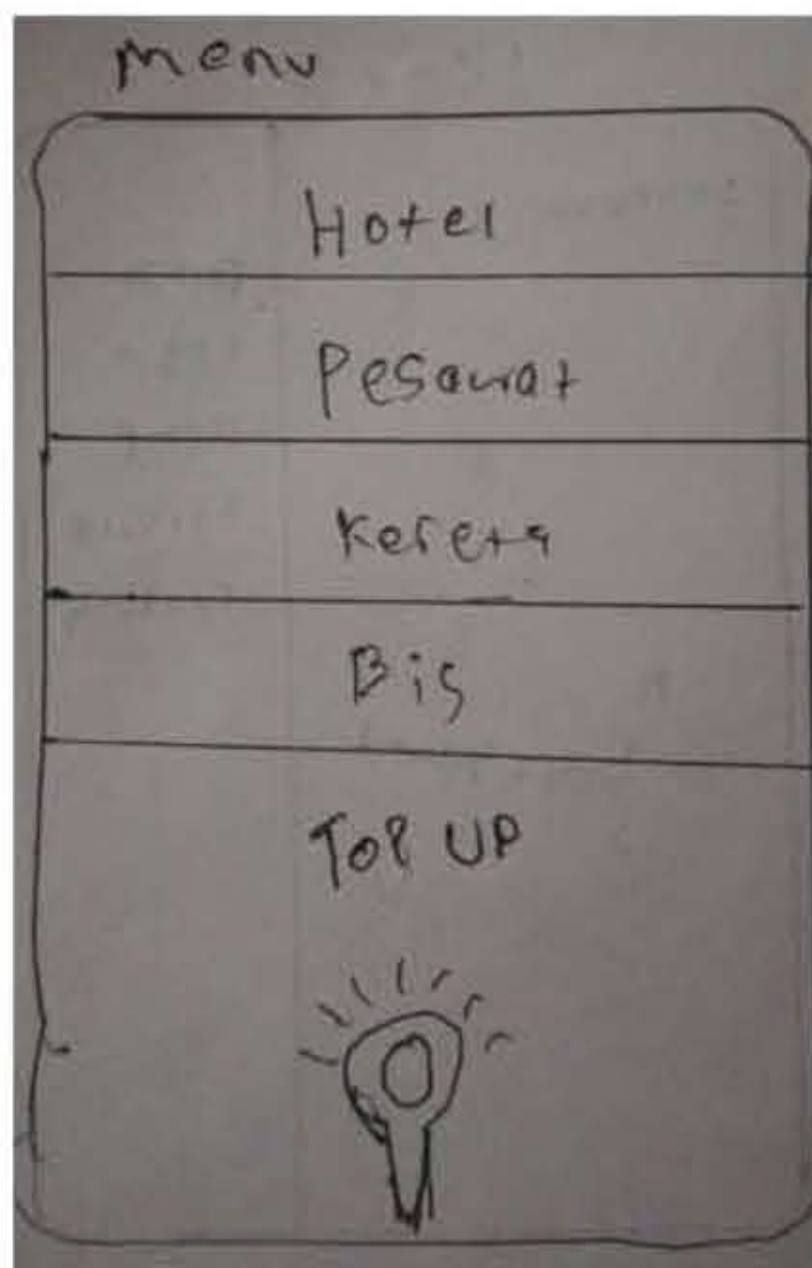 Menu
Hotel
Pesawat
Kereta
Bis
TOP UP